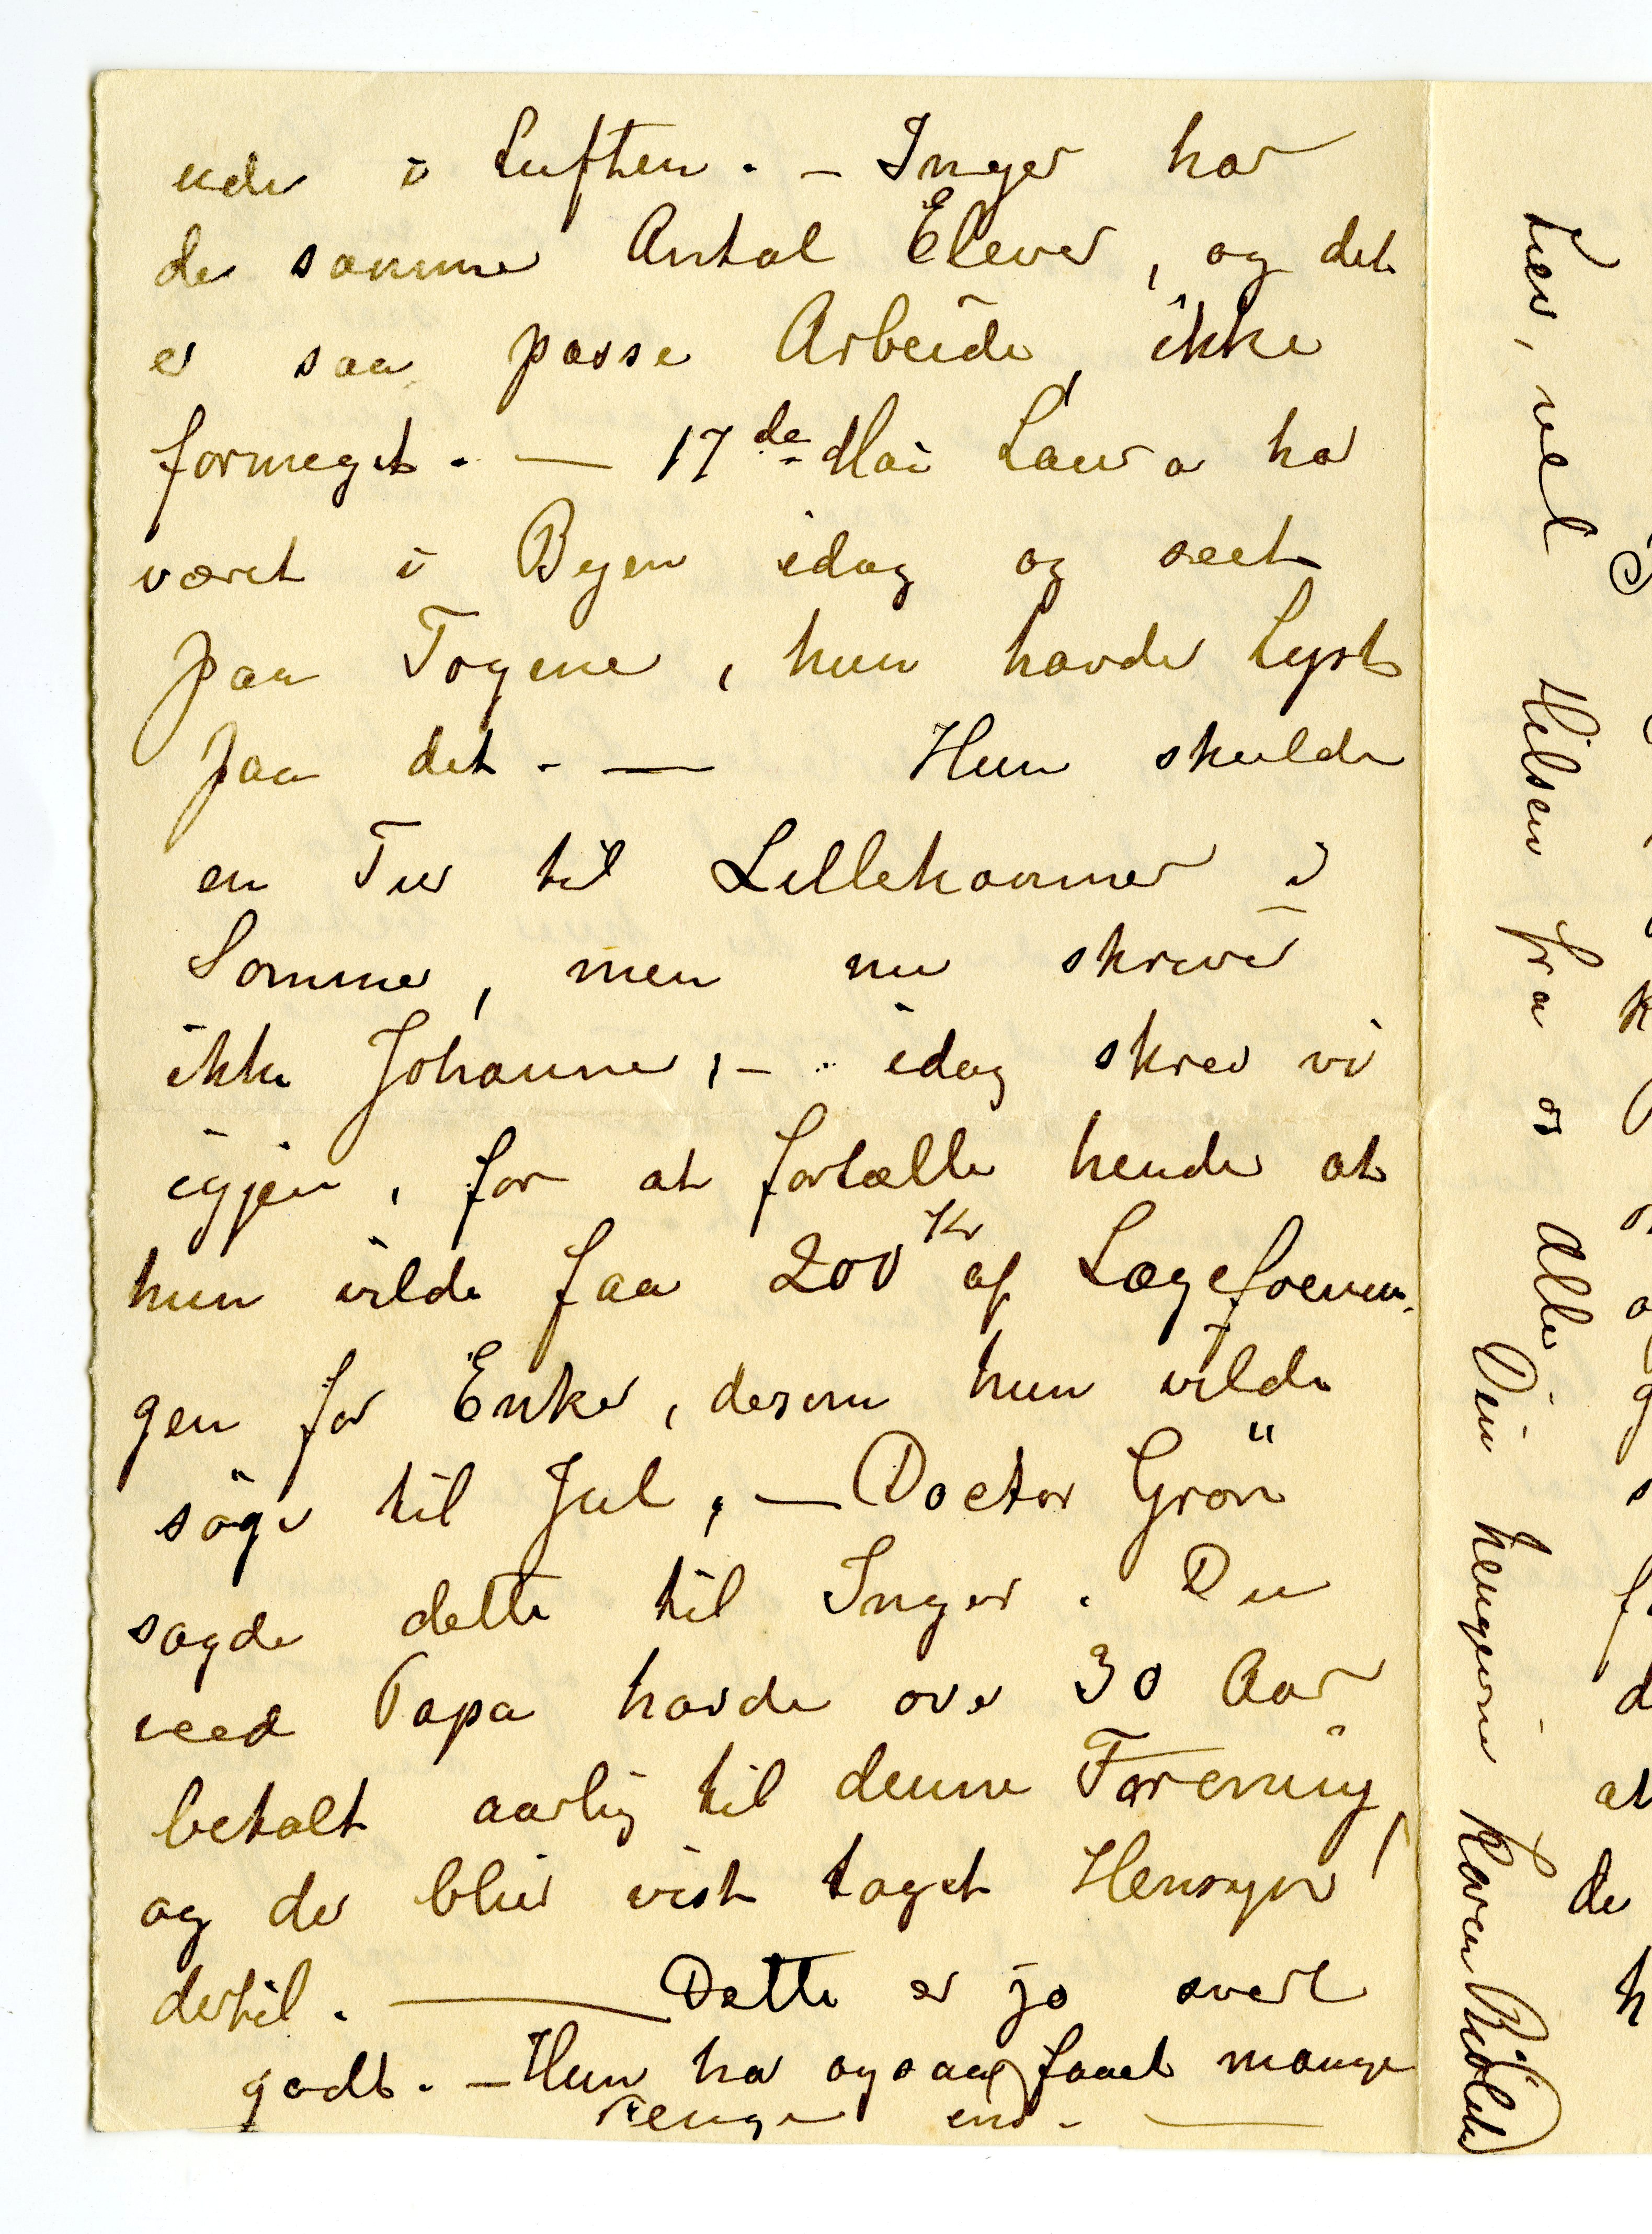 ude i Luften. – Inger har
de samme Antal Elever, og det
er saa passe Arbeide, ikke
formeget. — 17de Mai Laura har
været i Byen idag og seet
paa Togene, hun havde Lyst
paa det. — Hun skulde
en Tur til Lillehammer i
Sommer, men nu skriver
ikke Johanne, – idag skrev vi
igjen, for at fortælle hende at
hun vilde faa 200 Kr af Lægeforenin-
gen for Enker, dersom hun vilde
søge til Jul, — Doctor Grøn
sagde dette til Inger. Du
veed Papa havde over 30 Aar
betalt aarlig til denne Forening,
og der bliver vist taget Hensyn
dertil. — Dette er jo svert
godt. – Hun har ogsaa faaet mange
Penge ind. —
Lev vel Hilsen fra os Alle Din hengivne Karen Bjølstad